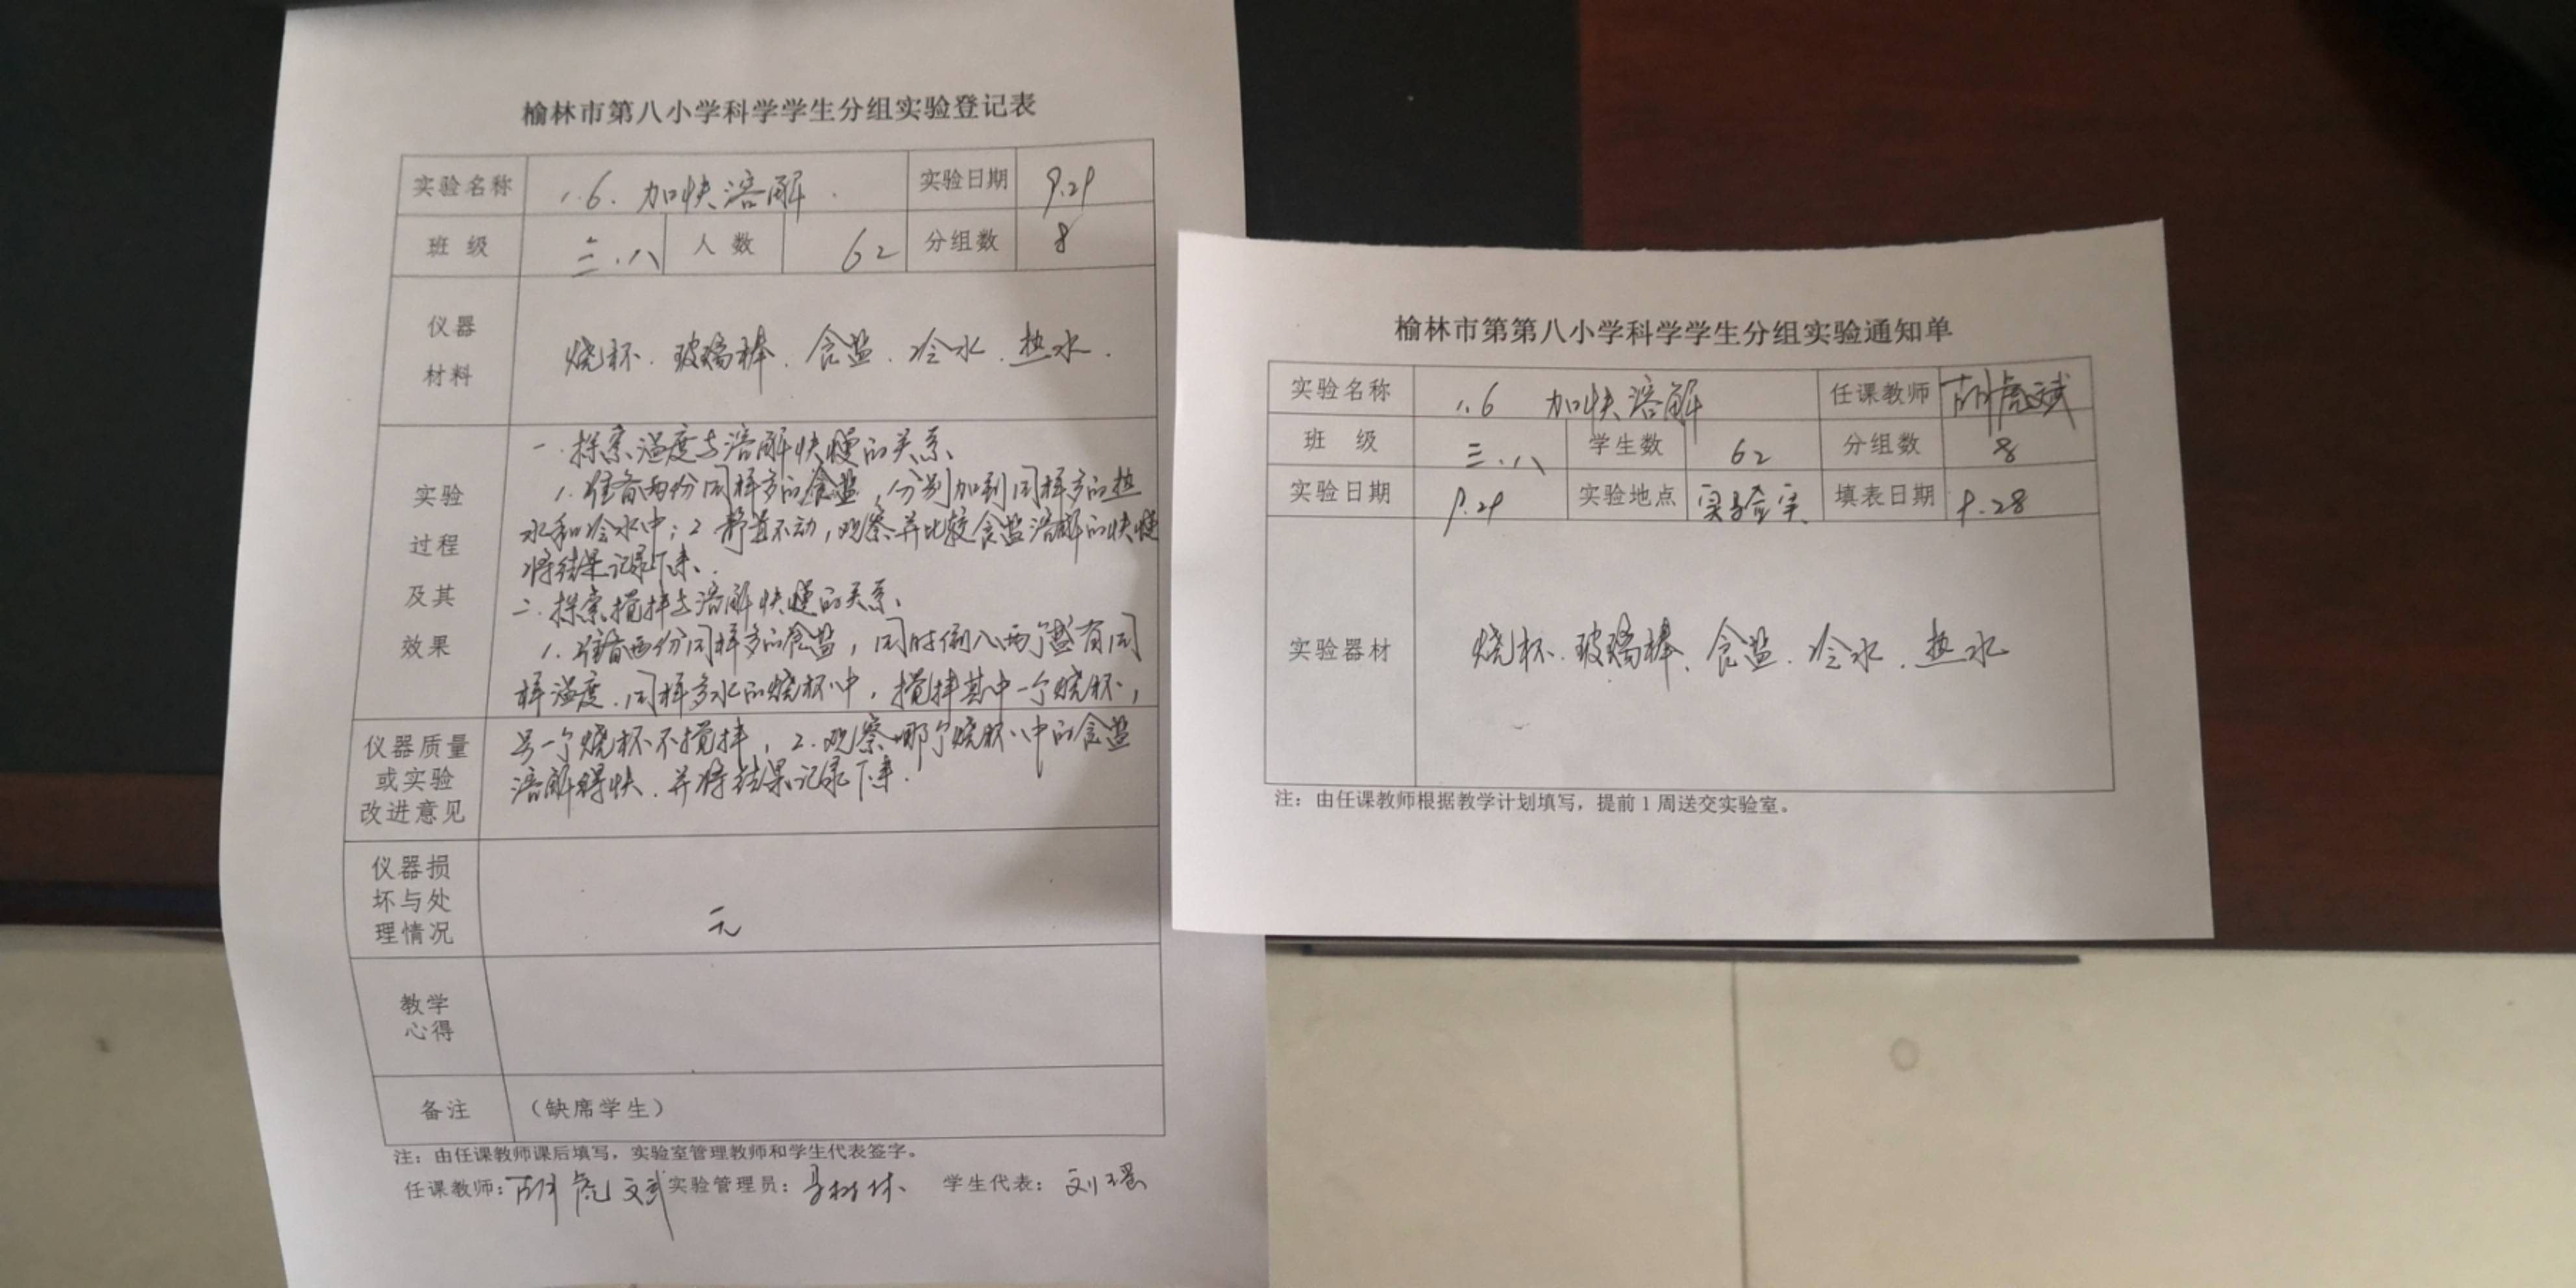 榆林市第八小学科学学生分组实验登记表
实验名称 1.6. 加快溶解. 实验日期 9.29
班 级 三.八 人 数 62 分组数 8
仪器
材料
烧杯. 玻璃棒. 食盐. 冷水. 热水.
实验
过程
及其
效果
一.探索温度与溶解快慢的关系.
1.准备两份同样多的食盐,分别加到同样多的热
水和冷水中;2 静置不动,观察并比较食盐溶解的快慢
将结果记录下来.
二.探索搅拌与溶解快慢的关系.
1.准备两份同样多的食盐,同时倒入两个盛有同
样温度.同样多水的烧杯中,搅拌其中一个烧杯,
另一个烧杯不搅拌,2.观察哪个烧杯中的食盐
溶解得快.并将结果记录下来.
仪器质量
或实验
改进意见
仪器损
坏与处
理情况
无
教学
心得
备注 (缺席学生)
注:由任课教师课后填写,实验室管理教师和学生代表签字。
任课教师: 实验管理员: 学生代表:刘瑶
榆林市第第八小学科学学生分组实验通知单
实验名称 1.6 加快溶解 任课教师
班 级 三.八 学生数 62 分组数 8
实验日期 9.29 实验地点 实验室 填表日期 9.28
实验器材 烧杯. 玻璃棒. 食盐. 冷水. 热水
注:由任课教师根据教学计划填写,提前1周送交实验室。